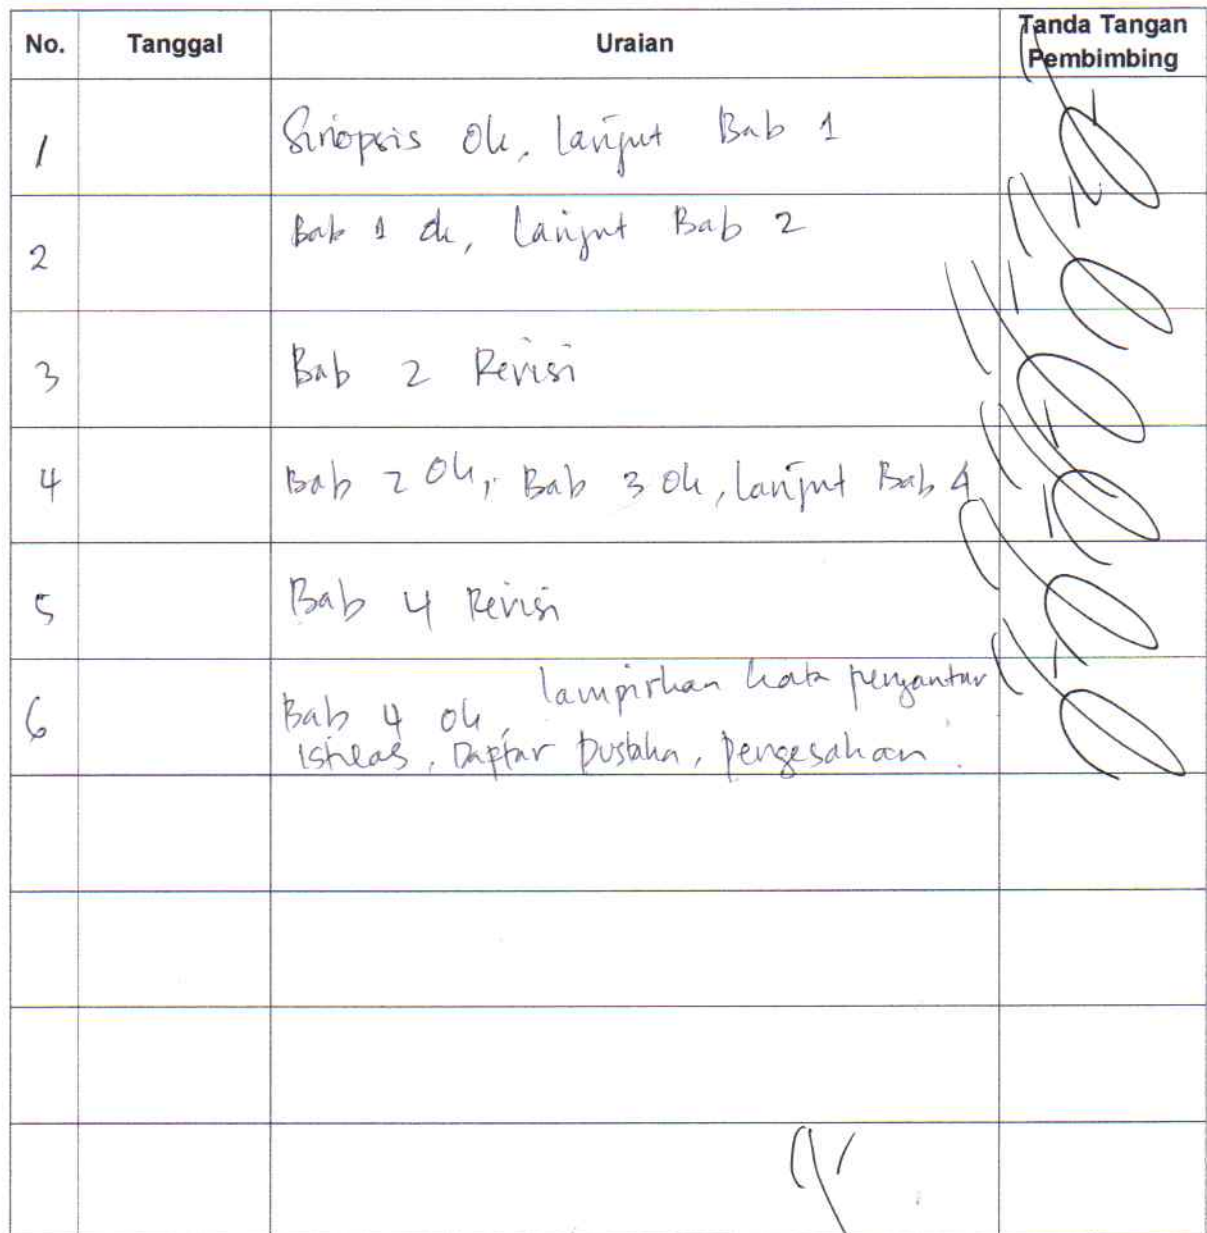 No. Tanggal Uraian Tanda Tangan
Pembimbing
1 Sinopsis Ok, lanjut Bab 1
2 Bab 1 ok, lanjut Bab 2
3 Bab 2 Revisi
4 Bab 2 Ok, Bab 3 Ok, lanjut Bab 4
5 Bab 4 Revisi
6 Bab 4 ok, lampirkan kata pengantar
Daftar Pustaka, pengesahan.